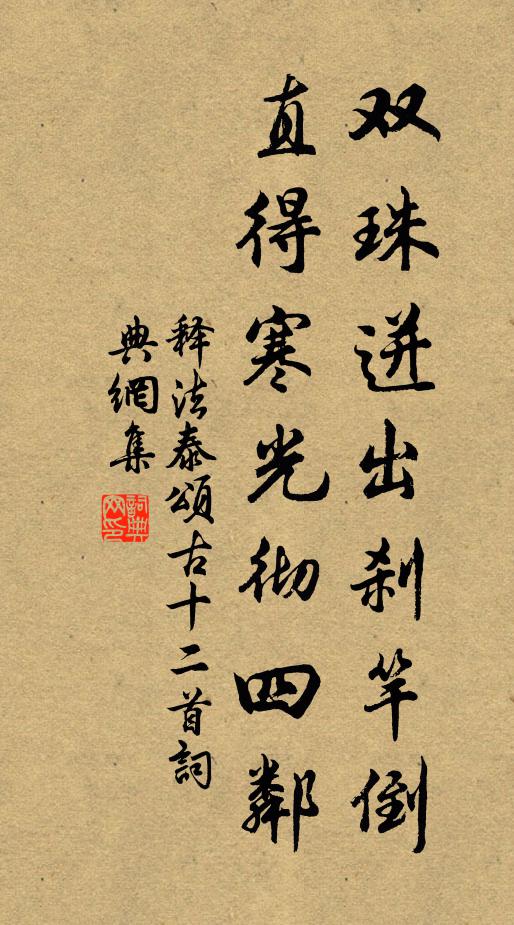 双珠迸出刹竿倒
直得寒光彻四鄰
释法泰頌古十二首詞
典網集
詞典网印